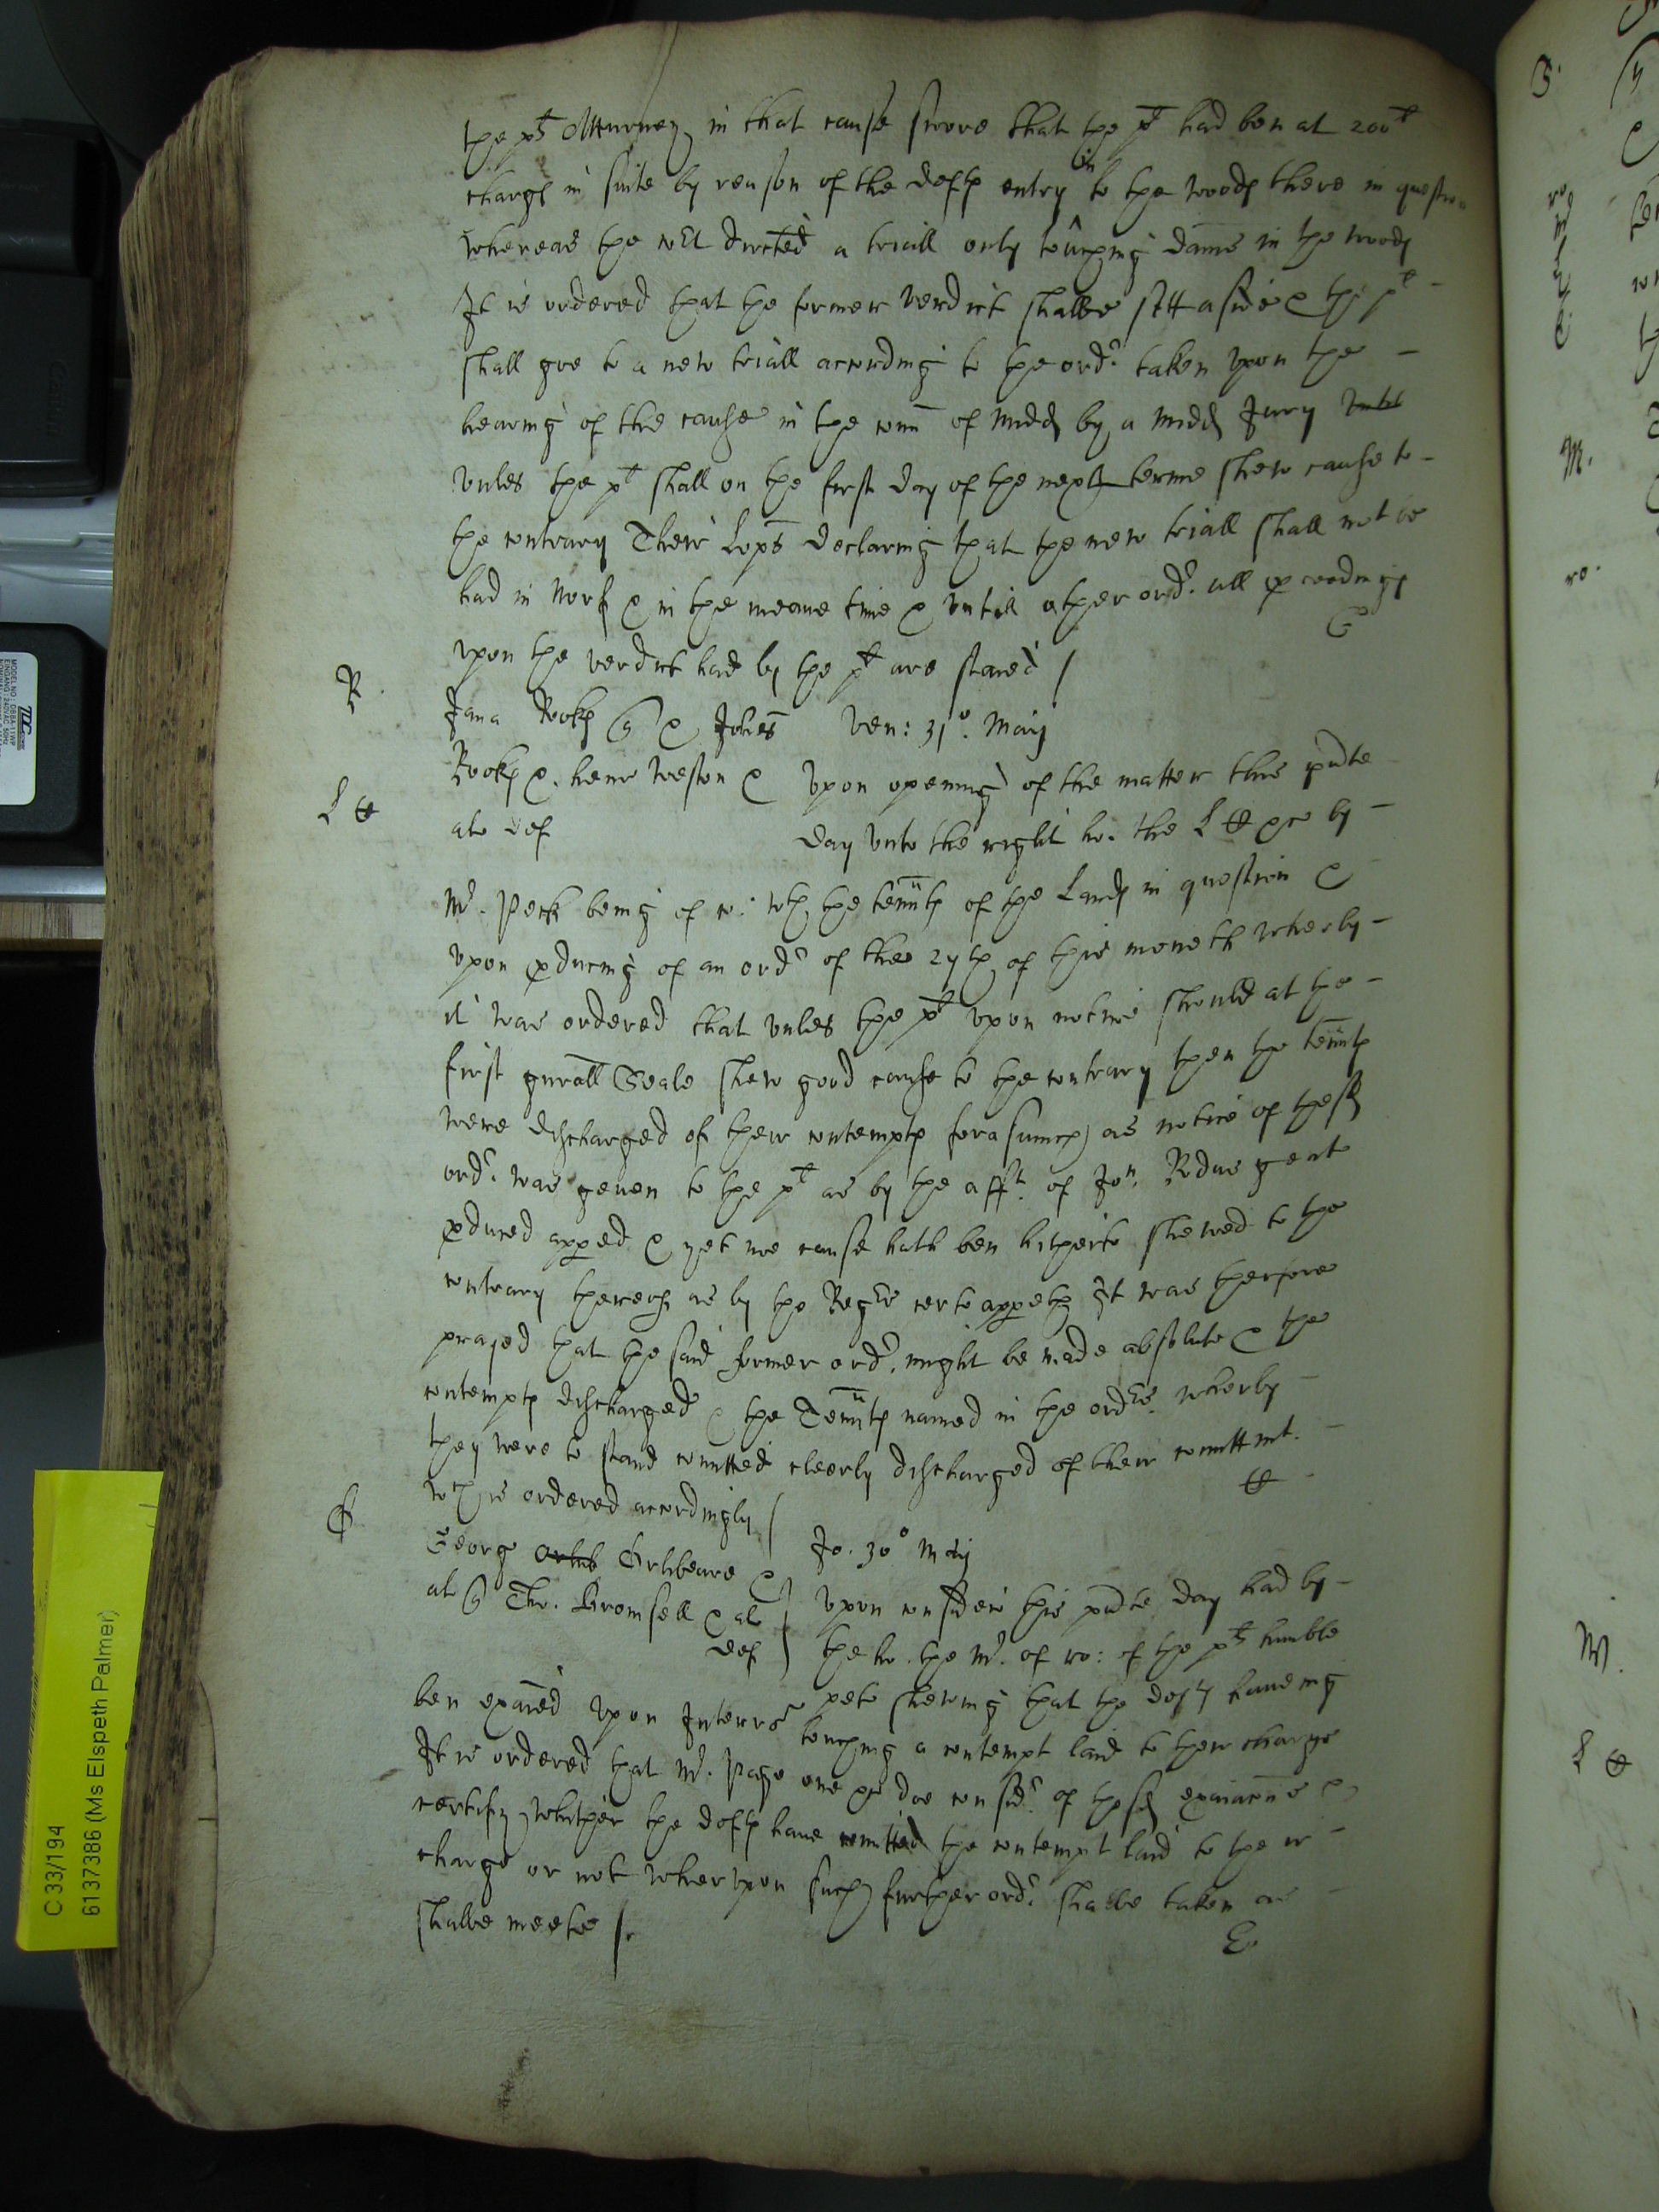 the plt Atturney in that cause swore that the plt had ben at 200l
charge in suite by reason of the defts entry into the woods there in question
whereas the cort directed a triall only touching dams in the woods
It is ordered that the former verdict shalbe sett aside & the plt
shall goe to a new triall according to the ordr taken upon the
hearing of the cause in the com of Midd by a Midd Jury
unles the plt shall on the first day of the next terme shew cause to
the contrary Their Lopps declaring that the new triall shall not be
had in Norf & in the meane time & untill other ordr all proceedings
upon the verdict had by the plt are staied /
R
Jana Rookes & Johes Ven: 31o Maij
Rookes &. henr Weston & Upon opening of the matter this pnte
L
als def day unto the right ho. the L by
Mr. Peck being of co: wth the tennts of the Lands in question &
upon producing of an ordr of the 27th of this moneth wherby
it was ordered that unles the plt upon notice should at the
first gnrall Seale shew good cause to the contrary then the tennts
were discharged of their contempts forasmuch as notice of the sd
ordr was geven to the plt as by the afft. of Jon. gent
produced appred & yet noe cause hath ben hitherto shewed to the
contrary therof as by the Regrs certe appeth It was therfore
praied that the said former ordr. might be made absolute & the
contempts discharged & the Tennts named in the ordrs. wherby
they were to stand comitted cleerly discharged of their comittmt.
wch is ordered accordingly /
Georg & Jo. 30o Maij
al Tho. Bromsell & als upon considr this pnte day had by
def the ho. the Mr. of ro: of the plts humble
petn shewing that the defts haveing
ben exaied upon Interr touching a contempt laid to their charge
It is ordered that Mr. Page one &c doe considr of the sd exaiacons &
certify whither the defts have comitted the contempt laid to their
charge or not wherupon such further ordr. shalbe taken as
shalbe meete /
C 33/194
6137386 (Ms Elspeth Palmer)